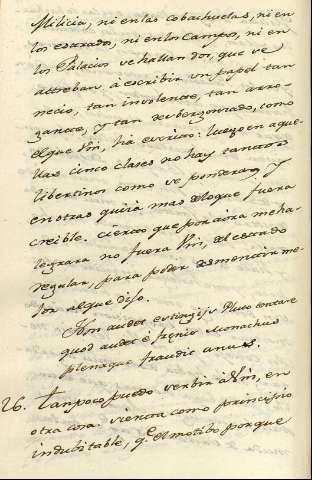 Milicia, ni en las cobachuelas, ni en
los estrados, ni en los Campos, ni en
los Palacios se hallan dos, que se
attreban à escribir un papel tan
necio, tan insolente, tan
y tan desbergonzado, como
el que Vm, ha escrito: luego en aque-
llas cinco clases no hay tantos
libertinos como se pondera, y
en otras quizà mas de loque fuera
creible. cierto que por aora me ha-
legrara no fuera Vm, del estado
regular, para poder desmentir me-
jor alque dijo.
Non audet Pluto tentare
quod audet
plenaque fraudis anus.
26. Tampoco puedo serbir à Vm, en
otra cosa. sienta como principio
indubitable, q.e el motibo porque